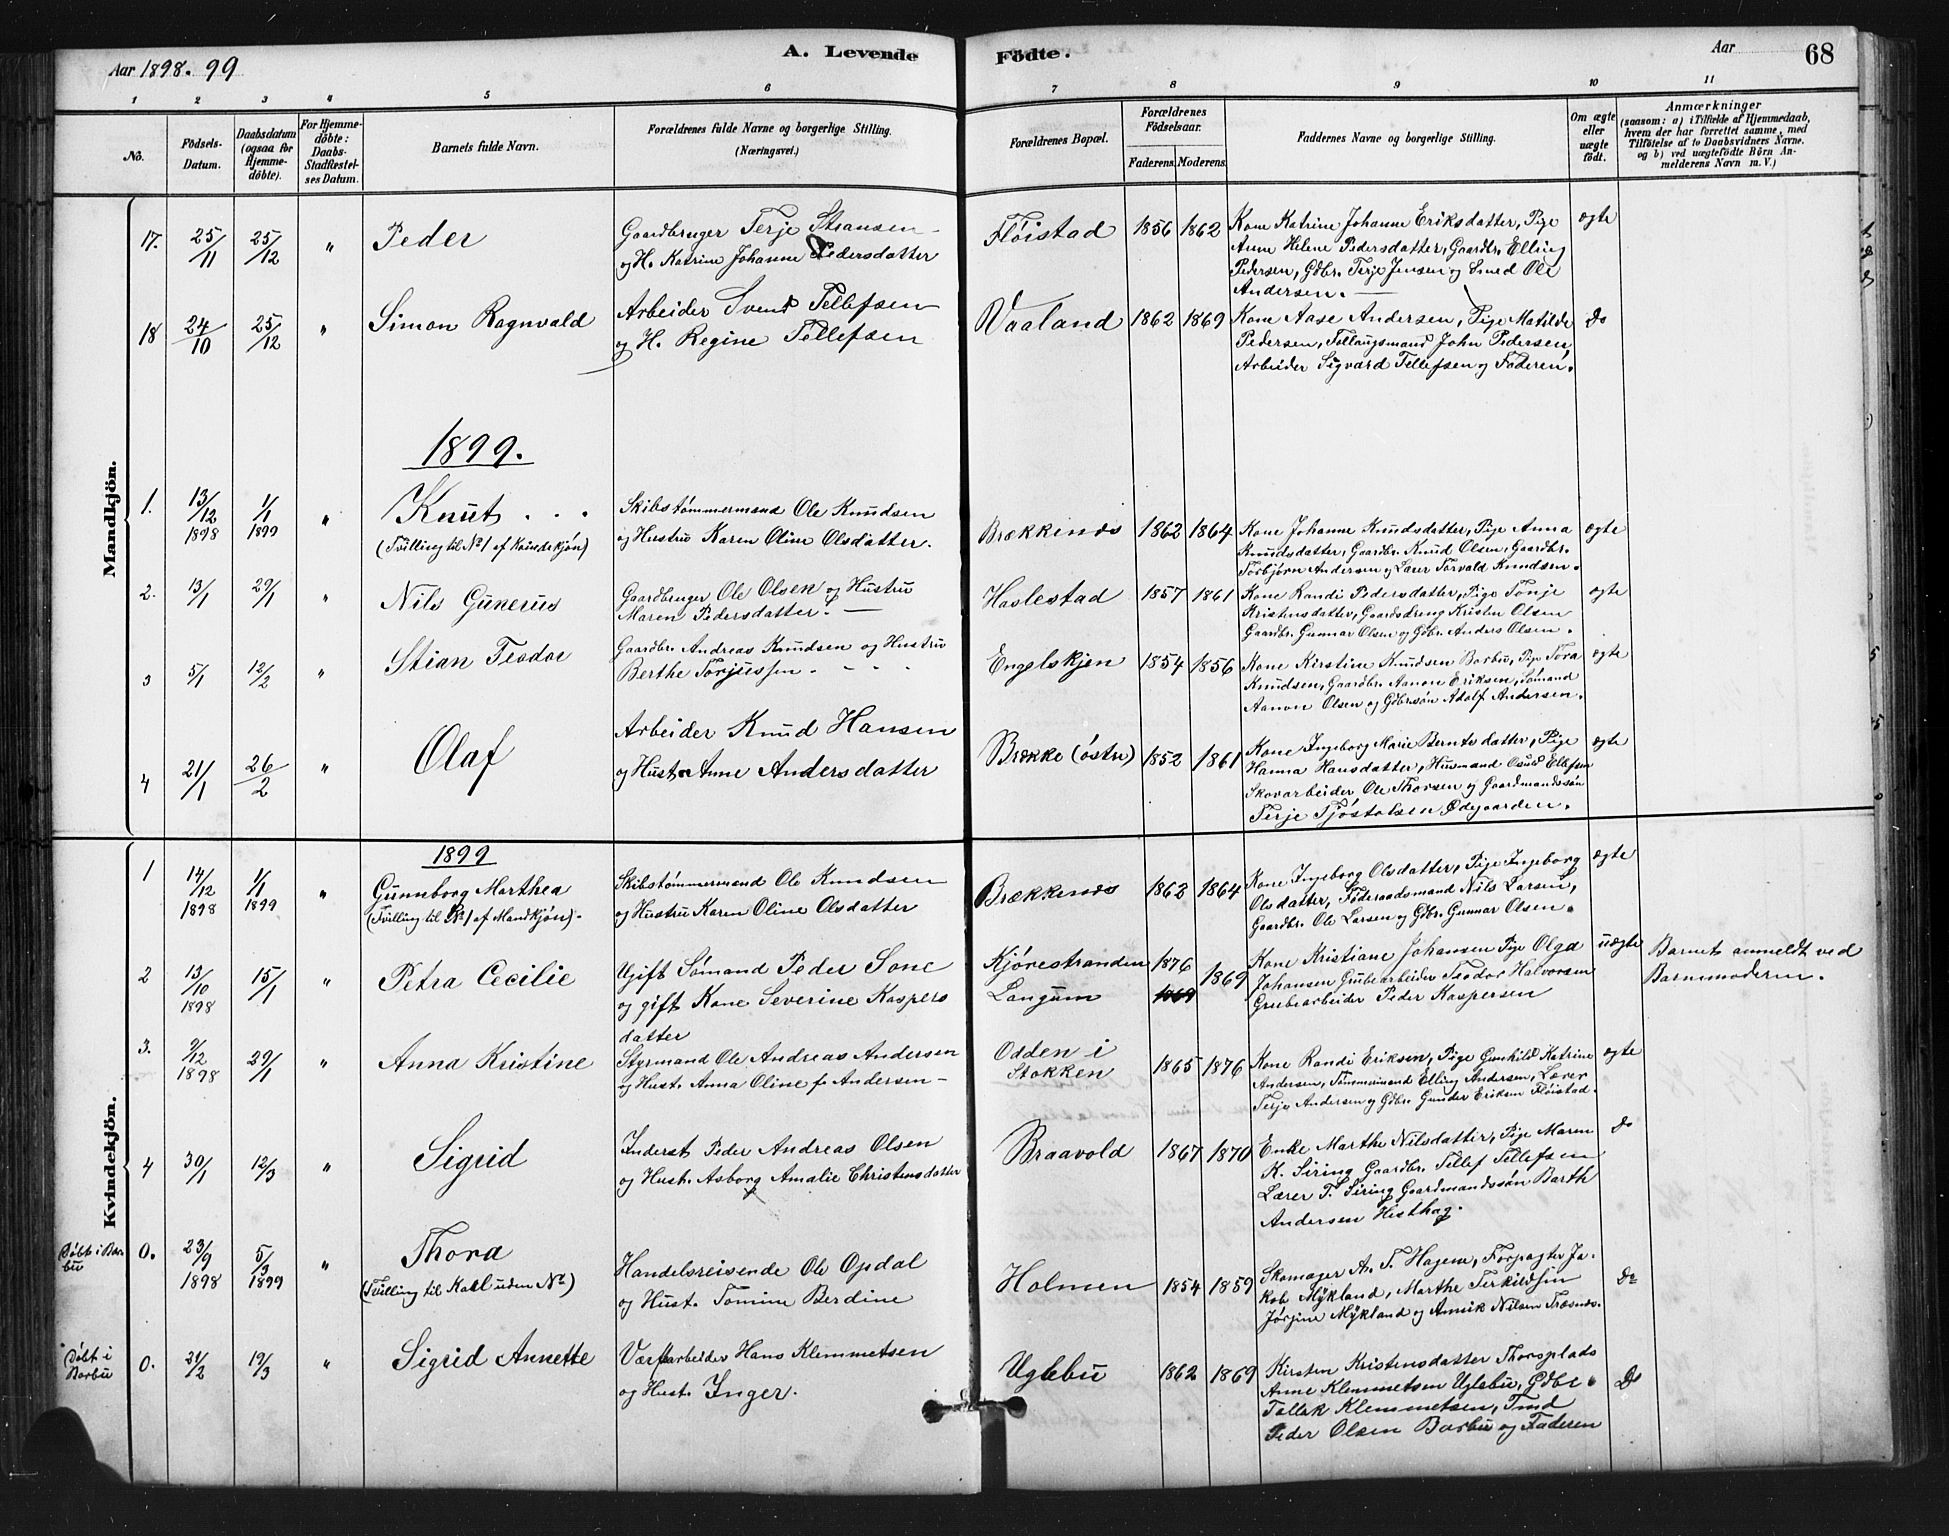 Aar 1898. 99
A. Levende
Födte.
Aar
68
1 2 3 4 5 6 7 8 9 10 11
No.
Födsels-
Datum.
Daabsdatum
(ogsaa for
Hjemme-
döbte).
For Hjemme-
döbte:
Daabs-
Stadfæstel-
ses Datum.
Barnets fulde Navn.
Forældrenes fulde Navne og borgerlige Stilling.
(Næringsvei.)
Forældrenes Bopæl.
Forældrenes
Födselsaar.
Faderens. Moderens.
Faddernes Navne og borgerlige Stilling.
Om ægte
eller
uægte
födt.
Anmærkninger
(saasom: a) i Tilfælde af Hjemmedaab,
hvem der har forrettet samme, med
Tilföielse af to Daabsvidners Navne.
og b) ved uægtefödte Börn An-
melderens Navn m. V.)
Mandkjön.
17. 25/11 25/12 " Peder
Gaardbruger Terje Stiansen
og H. Katrine Johanne Pedersdatter
Fløistad 1856 1862
Kone Katrine Johanne Eriksdatter, Pige
Anne Helene Pedersdatter, Gaardbr. Elling
Pedersen, Gdbr. Terje Jensen og Smed Ole
Andersen.
ægte
18 24/10 25/12 " Simon Ragnvald
Arbeider Svend Tellefsen
og H. Regine Tellefsen
Vaaland 1862 1869
Kone Aase Andersen, Pige Matilde
Pedersen, Fellaugsmand John Pedersen,
Arbeider Sigvard Tellefsen og Faderen.
Do
1899.
1. 13/12 1898 1/1 1899 " Knut
(Tvilling til No 1 af Kvindekjøn)
Skibstømmermand Ole Knudsen
og Hustru Karen Oline Olsdatter.
Brækkenes 1862 1864
Kone Johanne Knudsdatter, Pige Anna
Knudsdatter, Gaardbr. Knud Olsen, Gaardbr.
Torbjørn Andersen og Lærer Torvald Knudsen.
ægte
2. 13/1 29/1 " Nils Gunerus
Gaardbruger Ole Olsen og Hustru
Maren Pedersdatter.
Haslestad 1857 1861
Kone Randi Pedersdatter, Pige Tonje
Kristensdatter, Gaardsdreng Kristen Olsen
Gaardbr. Gunnar Olsen og Gdbr. Anders Olsen.
ægte
3 5/1 12/2 " Stian Teodor
Gaardbr. Andreas Knudsen og Hustru
Berthe Torjussen.
Engelskjen 1854 1856
Kone Kirstine Knudsen Barbu, Pige Tora
Knudsen, Gaardbr. Aanon Eriksen, Sømand
Aanon Olsen og Gdbrsøn Adolf Andersen.
ægte
4 21/1 26/2 " Olaf
Arbeider Knud Hansen
og Hust. Anne Andersdatter
Brække (østre) 1852 1861
Kone Ingeborg Marie Berntsdatter, Pige
Hanna Hansdatter, Husmand Osuld Ellefsen
Skovarbeider Ole Thorsen og Gaardmandssøn
Terje Tjøstolsen Ødegaarden.
ægte
Kvindekjön.
1899
1 14/12 1898 1/1 1899 " Gunnborg Marthea
(Tvilling til No 1 af Mandkjøn).
Skibstømmermand Ole Knudsen
og Hustru Karen Oline Olsdatter
Brækkenes 1862 1864
Kone Ingeborg Olsdatter, Pige Ingeborg
Olsdatter, Føderaadsmand Nils Larsen,
Gaardbr. Ole Larsen og Gdbr. Gunnar Olsen.
ægte
2 13/10 1898 15/1 " Petra Cecilie
Ugift Sømand Peder Sone
og gift Kone Severine Kaspers
datter
Kjørestranden
Langum
1876 1869
1869
Kone Kristiane Johansen Pige Olga
Johansen Grubearbeider Teodor Halvorsen
Grubearbeider Peder Kaspersen
uægte
Barnets anmeldt ved
Barnemoderen.
3. 9/12 1898 29/1 " Anna Kristine
Styrmand Ole Andreas Andersen
og Hust. Anna Oline f. Andersen
Odden i
Stokken
1865 1876
Kone Randi Eriksen, Pige Gunhild Katrine
Andersen, Tømmermand Elling Andersen, Lærer
Terje Andersen og Gdbr. Gunder Eriksen Fløistad.
ægte
4 30/1 12/3 " Sigrid
Inderst Peder Andreas Olsen
og Hust. Asborg Amalie Christensdatter
Braavold 1867 1870
Enke Marthe Nilsdatter, Pige Maren
K. Siring Gaardbr. Tellef Tellefsen
Lærer T. Siring Gaardmandssøn Barth
Andersen Histhag.
Do
Døbt i Bar
bu
0. 23/9 1898 5/3 1899 " Thora
(Tvilling til Karl uden No)
Handelsreisende Ole Opdal
og Hust. Tomine Berdine
Holmen 1854 1859
Skomager A. T. Hagem, Forpagter Ja-
kob Mykland, Marthe Terkildsen
Jørgine Mykland og Annik Nilsen Træsnes.
Do
Døbt i
Barbu
0. 21/2 19/3 " Sigrid Annette
Værftarbeider Hans Klemmetsen
og Hust. Inger.
Uglebu 1862 1869
Kirsten Kristensdatter Thorsplads
Anne Klemmetsen Uglebu, Gdbr.
Tallak Klemmetsen, Tmd
Peder Olsen Barbu og Faderen
Do